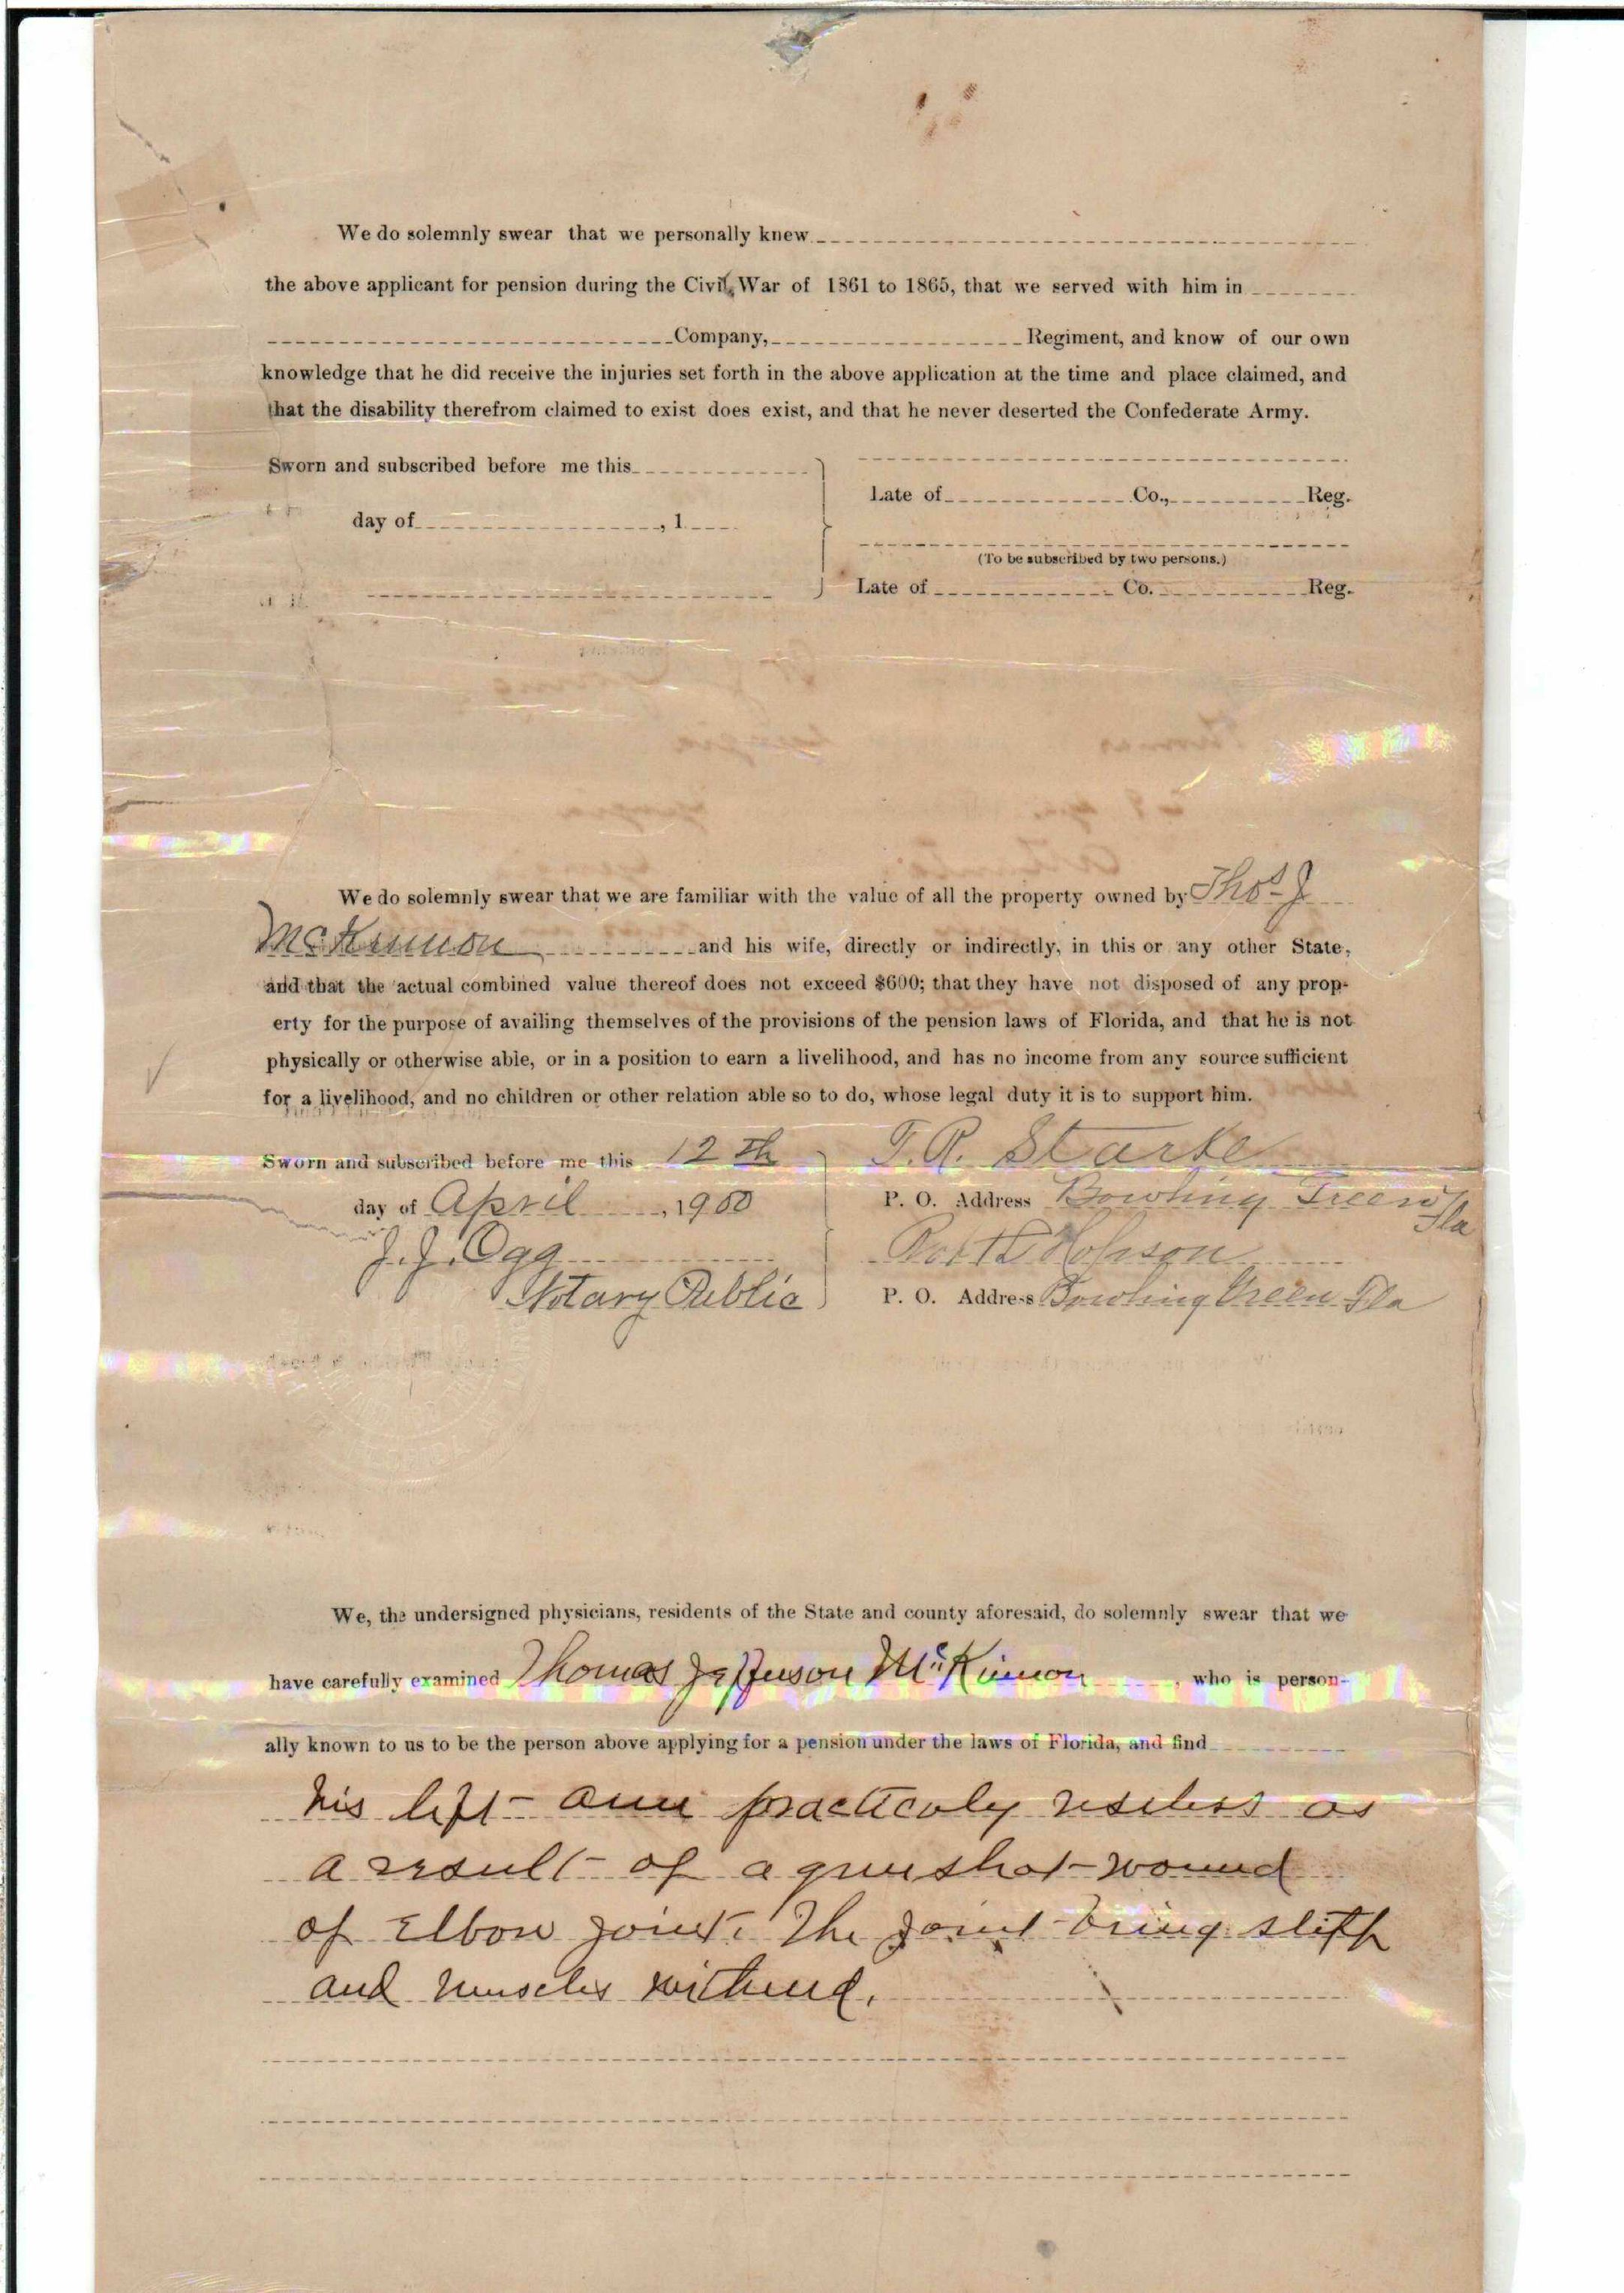 We do solemnly swear that we personally knew
the above applicant for pension during the Civil War of 1861 to 1865, that we served with him in
Company, Regiment, and know of our own
knowledge that he did receive the injuries set forth in the above application at the time and place claimed, and
that the disability therefrom claimed to exist does exist, and that he never deserted the Confederate Army.
Sworn and subscribed before me this
Late of Co., Reg.
day of , 1
(To be subscribed by two persons.)
Late of Co. Reg.
We do solemnly swear that we are familiar with the value of all the property owned by Thos J
McKinnon and his wife, directly or indirectly, in this or any other State,
and that the actual combined value thereof does not exceed $600; that they have not disposed of any prop-
erty for the purpose of availing themselves of the provisions of the pension laws of Florida, and that he is not
physically or otherwise able, or in a position to earn a livelihood, and has no income from any source sufficient
for a livelihood, and no children or other relation able so to do, whose legal duty it is to support him.
Sworn and subscribed before me this 12th T.R. Starke
day of April, 1900 P. O. Address Bowling Green Fla
J. J. Ogg
Notary Public P. O. Address Bowling Green Fla
We, the undersigned physicians, residents of the State and county aforesaid, do solemnly swear that we
have carefully examined Thomas Jefferson McKinnon, who is person-
ally known to us to be the person above applying for a pension under the laws of Florida, and find
his left arm practicaly useless as
a result of a gunshot wound
of Elbow joint. The joint being stiff
and muscles withered.